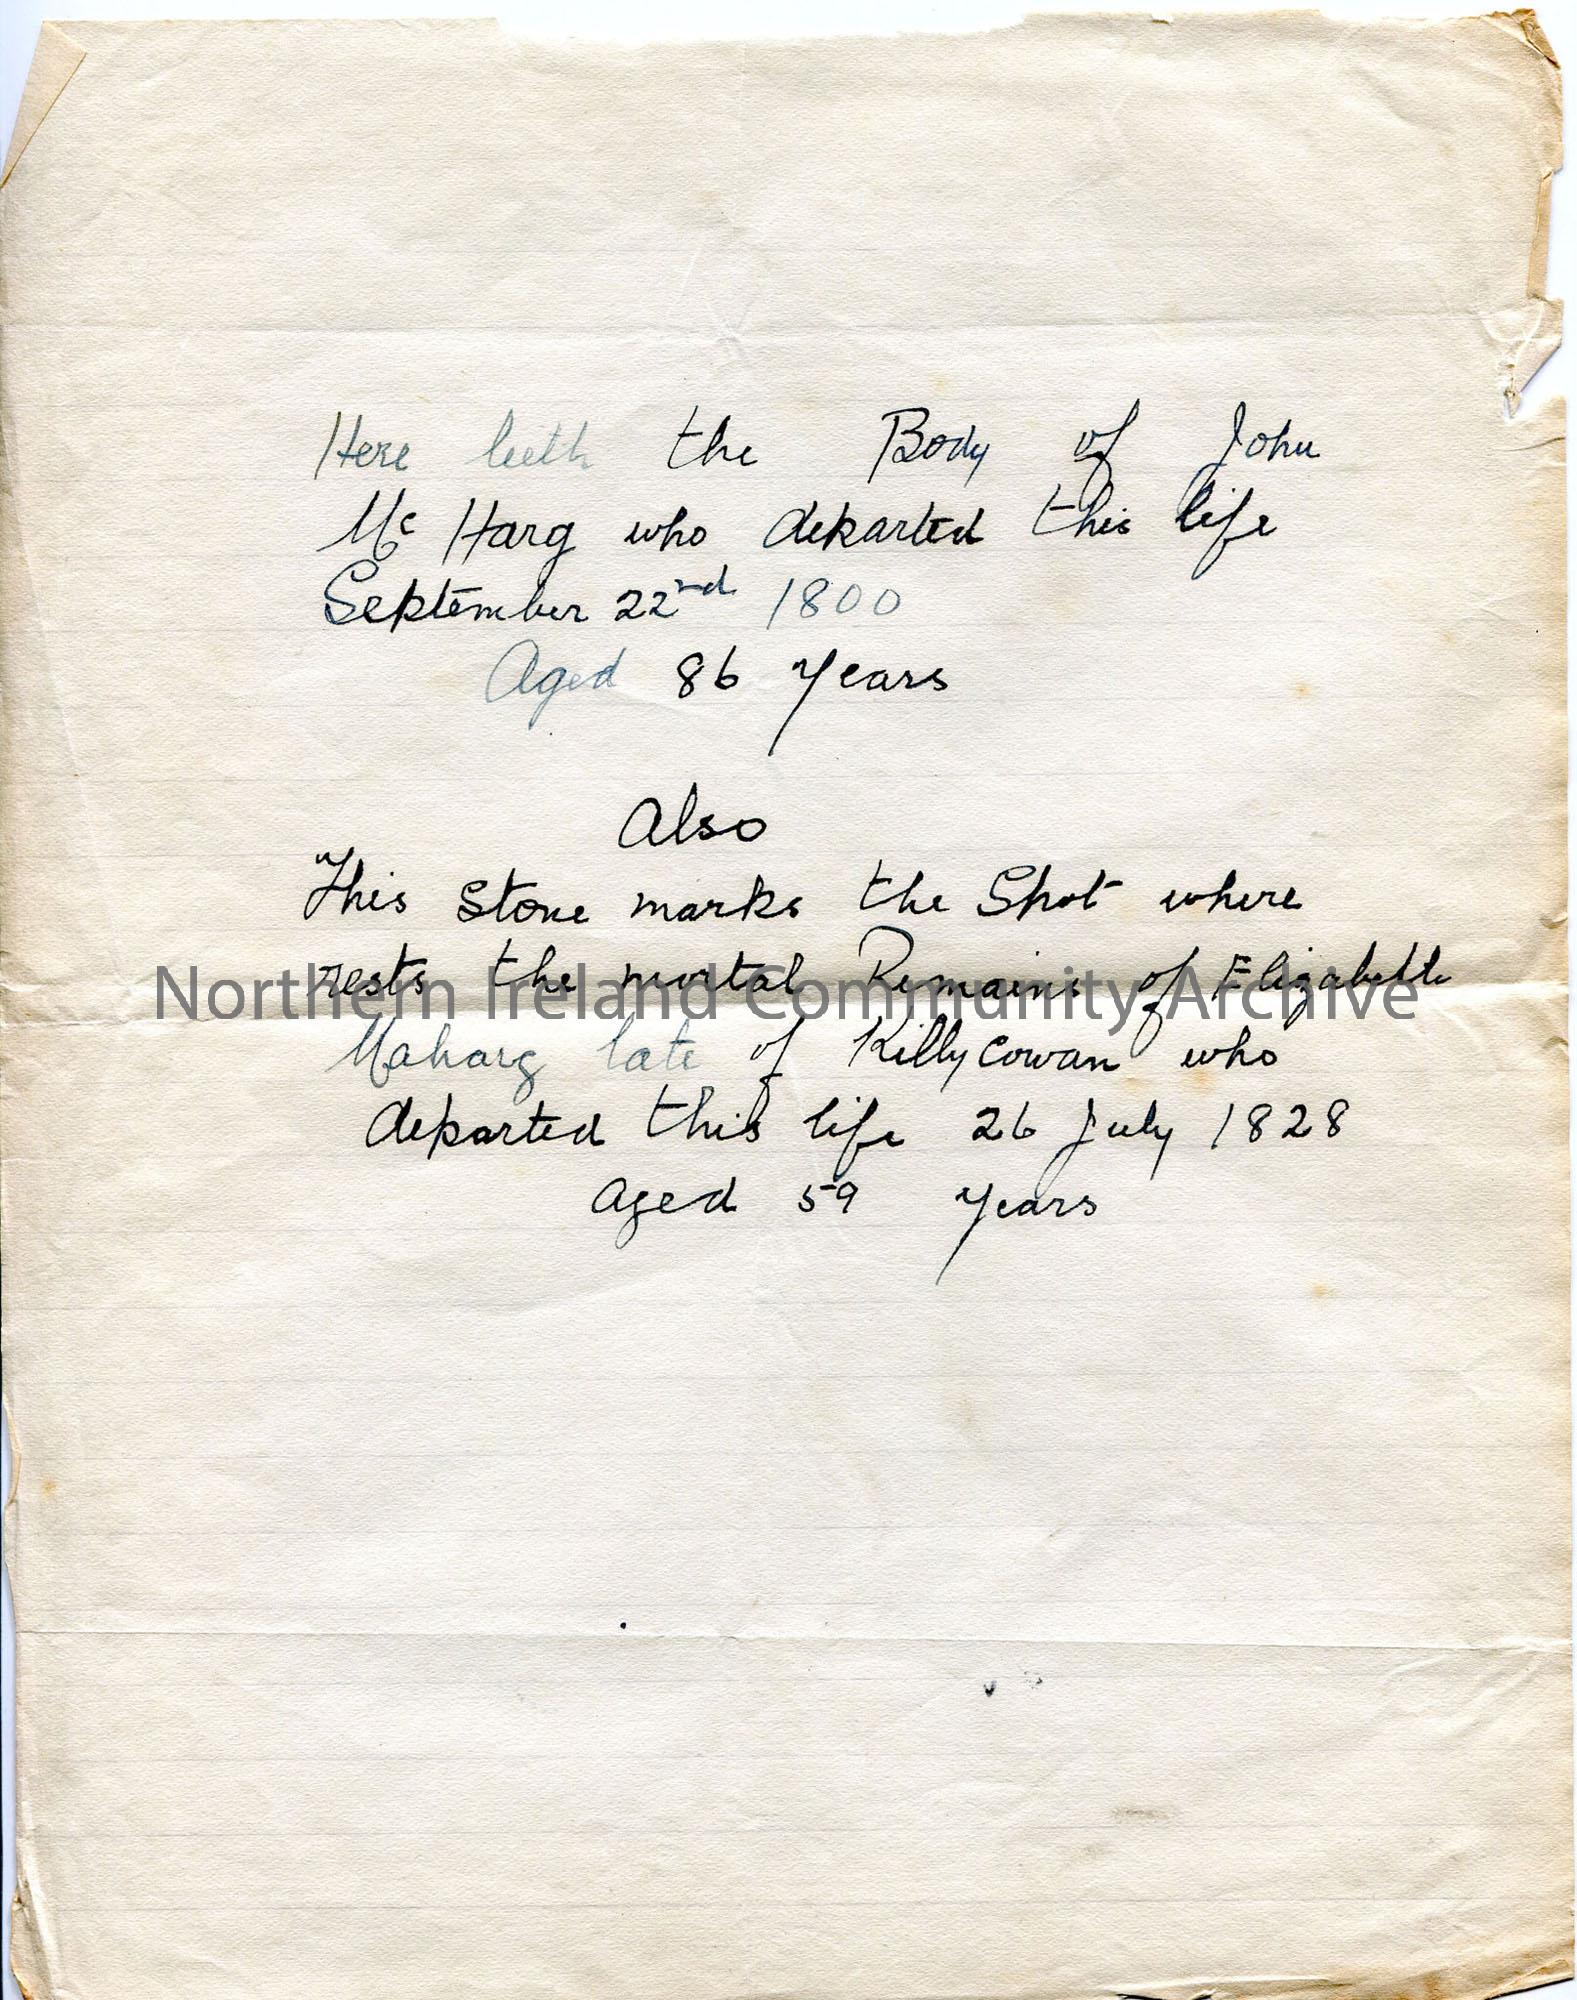 Here lieth the Body of John
Mc Harg who departed this life
September 22nd 1800
Aged 86 Years
Also
This Stone marks the Spot where
rests the mortal Remains of Elizabeth
Maharg late of Killycowan who
departed this life 26 July 1828
Aged 59 Years
Northern Ireland Community Archive